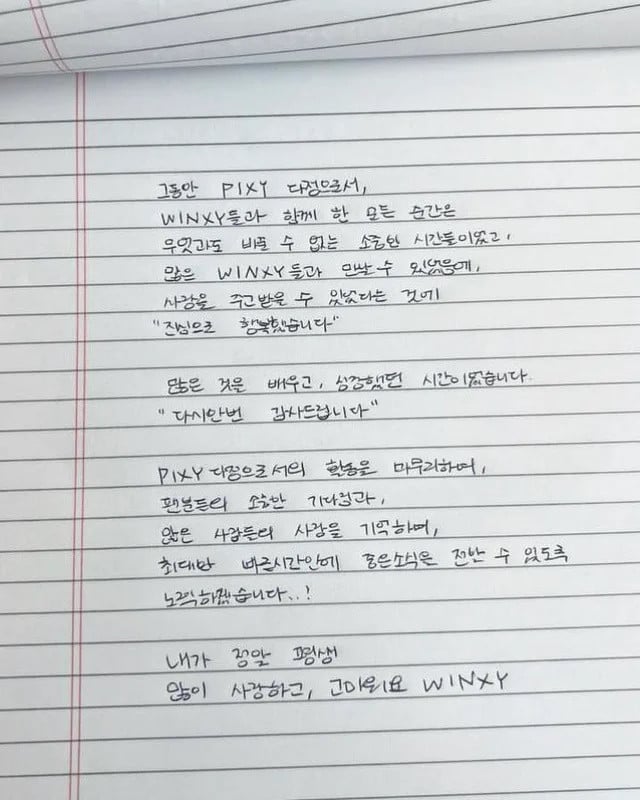 그동안 PIXY 다정으로서,
WINXY들과 함께 한 모든 순간은
무엇과도 바꿀 수 없는 소중한 시간들이었고,
많은 WINXY들과 만날 수 있었음에,
사랑을 주고받을 수 있었다는 것에
"진심으로 행복했습니다"
많은 것을 배우고, 성장했던 시간이었습니다.
"다시한번 감사드립니다"
PIXY 다정으로서의 활동을 마무리하며,
팬분들의 소중한 기다림과,
많은 사람들의 사랑을 기억하며,
최대한 빠른시간안에 좋은소식을 전할 수 있도록
노력하겠습니다..!
내가 정말 평생
많이 사랑하고, 고마워요 WINXY